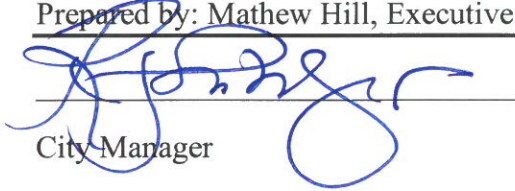 Prepared by: Mathew Hill, Executive
City Manager